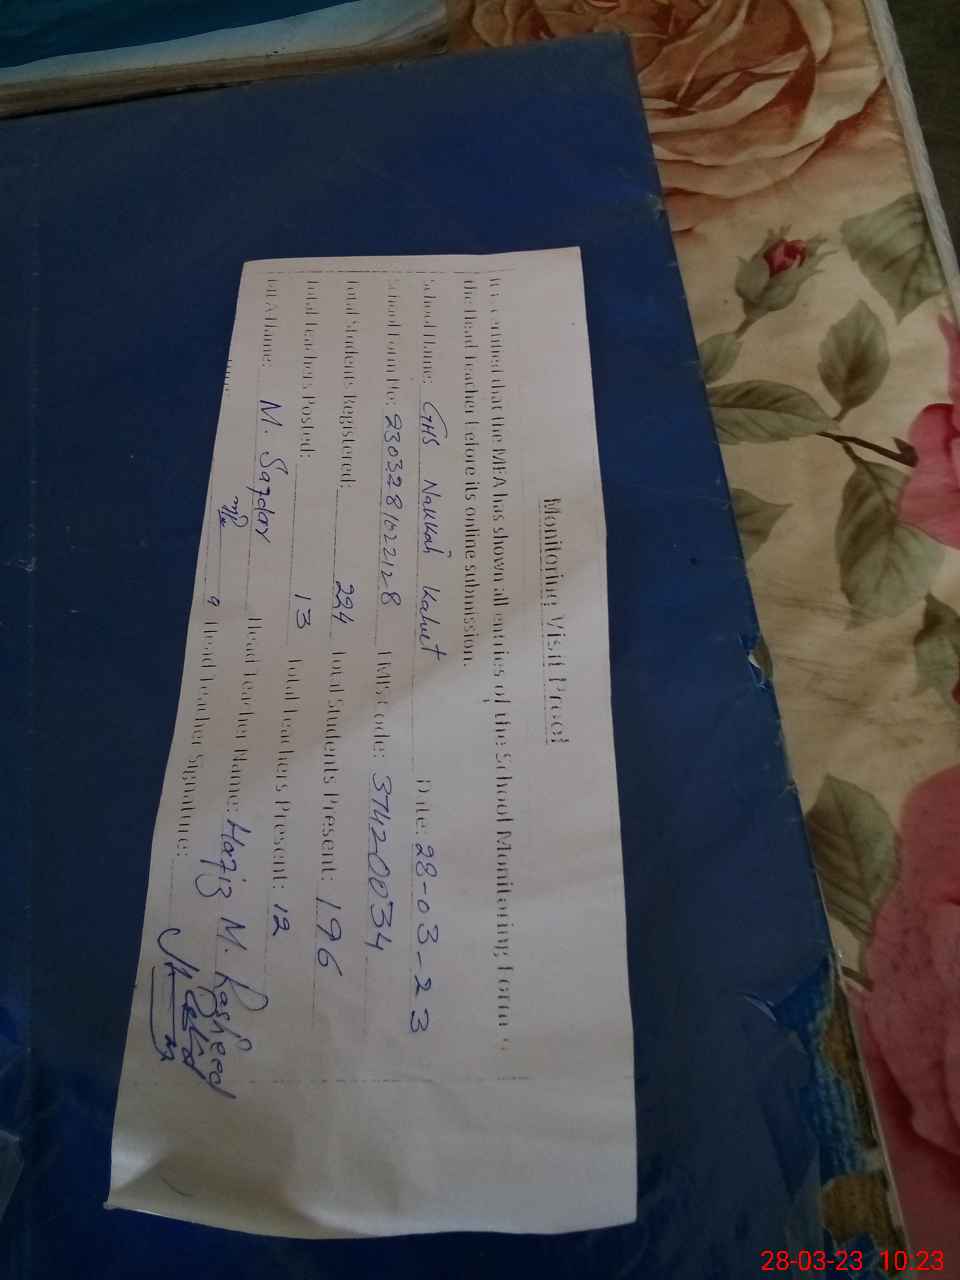 Monitoring Visit Proof
It is certified that the MEA has shown all entries of the School Monitoring Form to
the Head Teacher before its online submission.
School Name: GHS Nakkah Kahut Date: 28-03-23
School Form No: EMIS Code: 37420034
Total Students Registered: 224 Total Students Present: 196
Total Teachers Posted: 13 Total Teachers Present: 12
MEA Name: M. Safdar Head Teacher Name: Hafiz M. Rasheed
Head Teacher Signature:
28-03-23 10:23